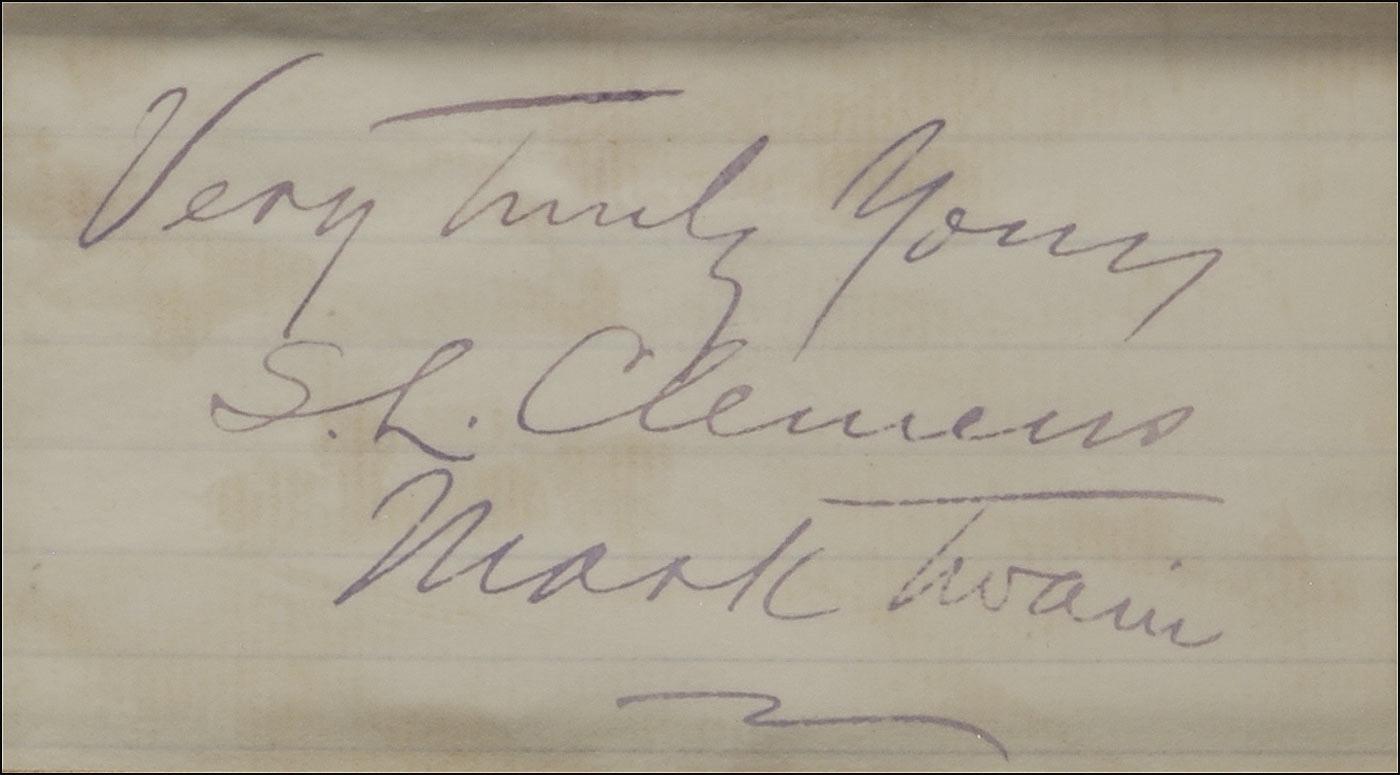 Very Truly Yours
S. L. Clemens
Mark Twain